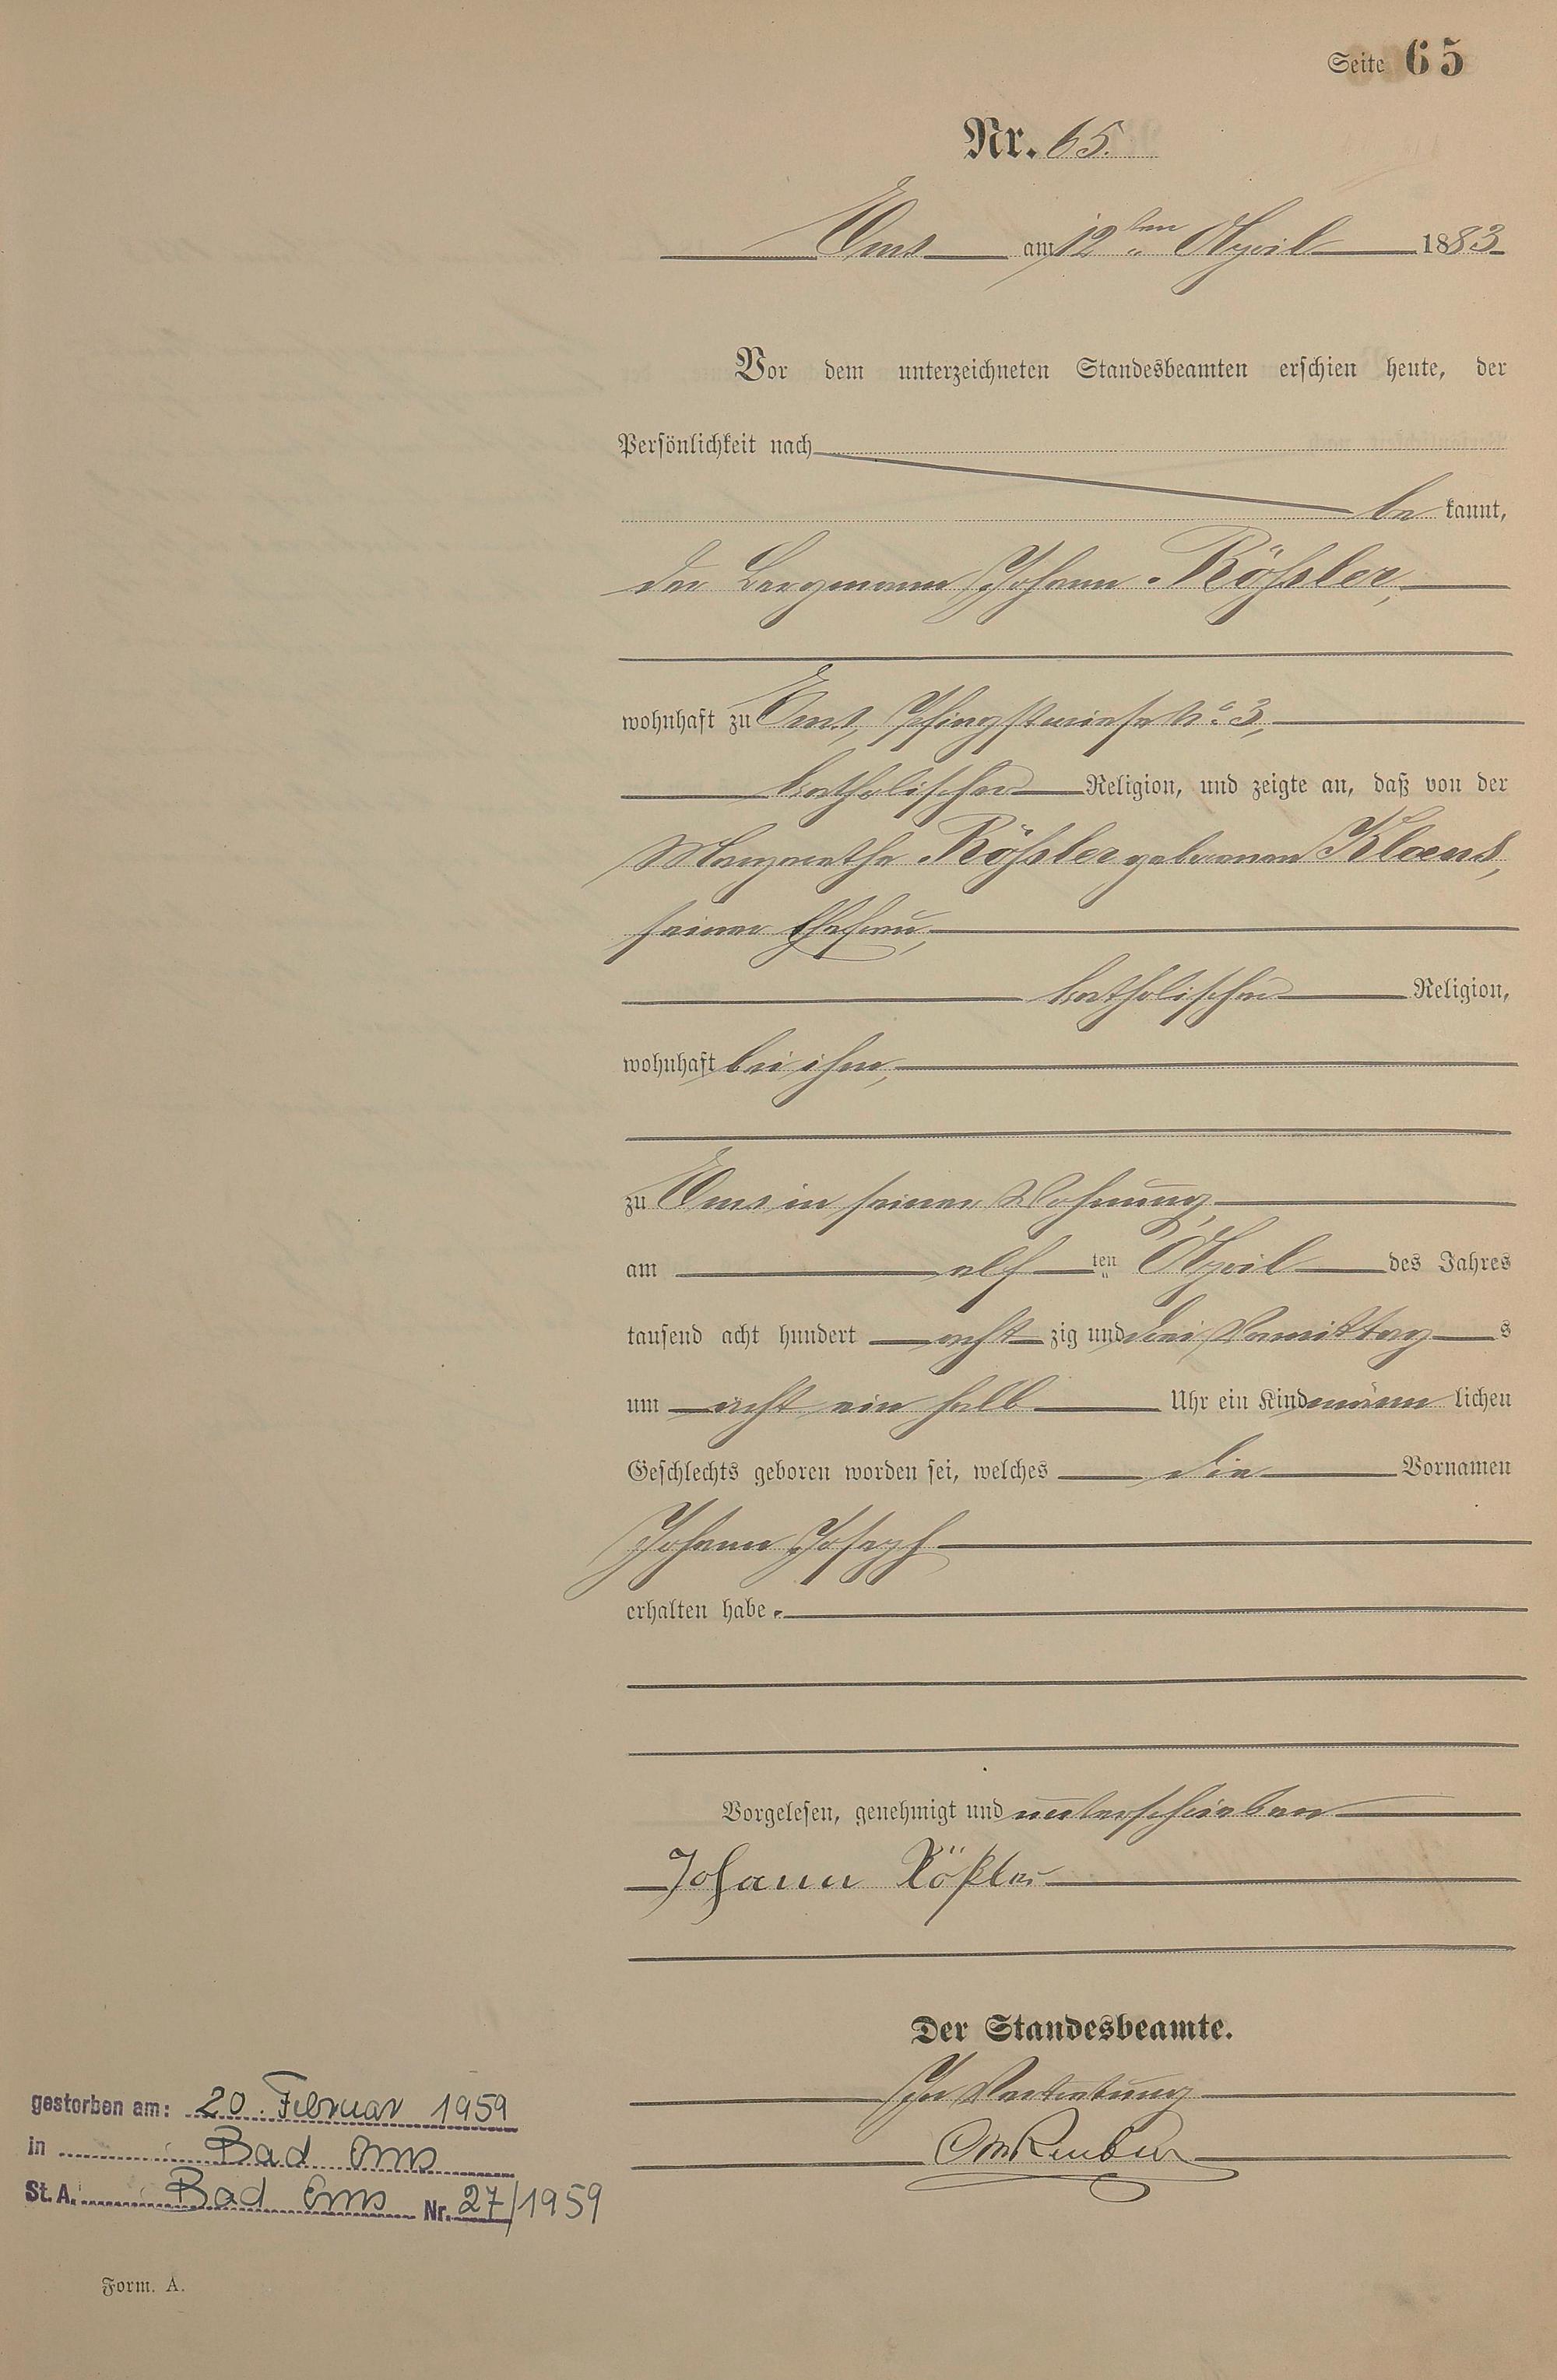 Seite 65
Nr. 65.
Ems am 12ten April 1883
Vor dem unterzeichneten Standesbeamten erschien heute, der
Persönlichkeit nach
be kannt,
der Bergmann Johann Rößler,
wohnhaft zu Ems, Pfingstwiese No 3,
katholischer Religion, und zeigte an, daß von der
Margarethe Rößler geborenen Kloens,
seiner Ehefrau,
katholischer Religion,
wohnhaft bei ihm,
zu Ems in seiner Wohnung,
am elf ten April des Jahres
tausend acht hundert acht zig und drei Vormittag s
um acht ein halb Uhr ein Kind männ lichen
Geschlechts geboren worden sei, welches die Vornamen
Johann Joseph
erhalten habe.
Vorgelesen, genehmigt und unterschrieben
Johann Rößler
Der Standesbeamte.
In Vertretung
gestorben am: 20. Februar 1959
in Bad Ems
St. A. Bad Ems Nr. 27/1959
Form. A.